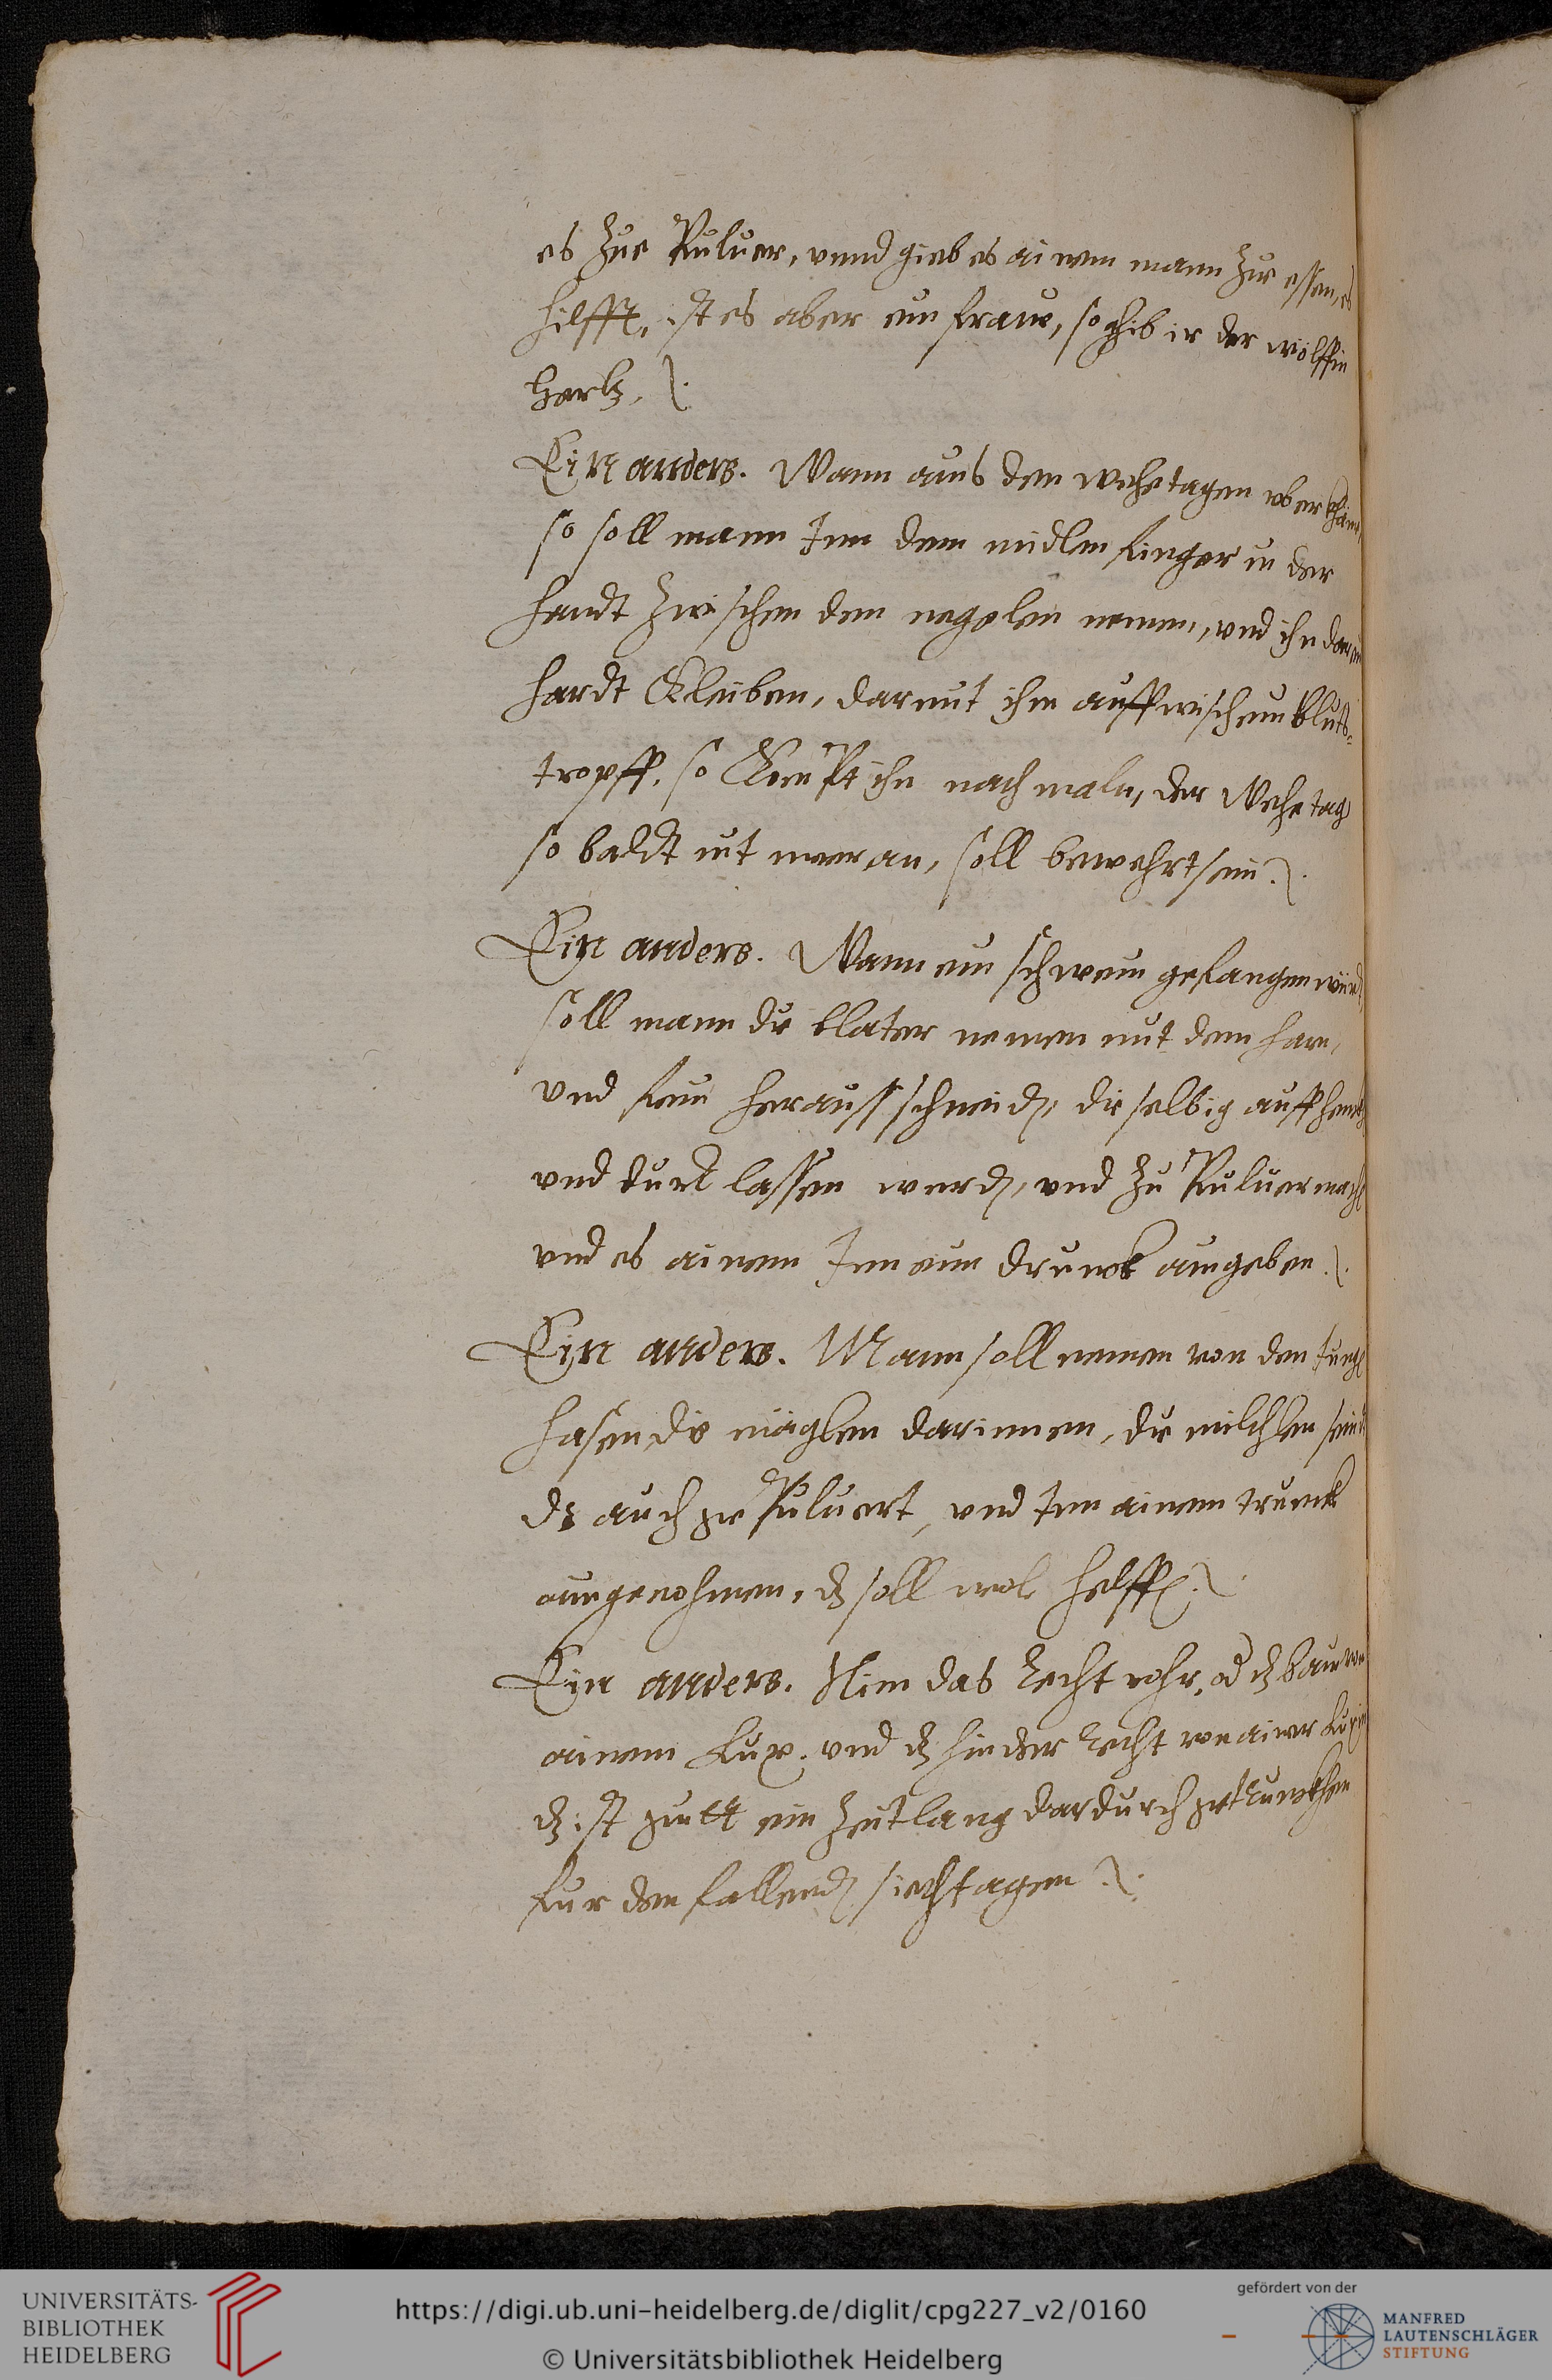 es zue Puluer, vnnd gieb es ainem mann zur essen, es
hilfft, ist es aber ein frauw, so gib ir der wölffin
hertz ⁊.
Ein anders. Wann ains den wehetagen vberkhumt,
so soll mann Inn dem midlen finger in der
handt zwischen dem negelen nemen, vnd ihn darin
hardt kleüben, darmit ihm auffwisch ein bluts-
tropff, so kumpt ihn nachmaln, der wehetag
so baldt nit mer an, soll bewehrt sein ⁊.
Ein anders. Wann ein schwein gefangen würd
soll mann die blater nemen mit dem harn,
vnd fein heraussschneiden, die selbig auffhenckhen
vnd durr lassen werden, vnd zu Puluer machen
vnd es ainem Inn eim drunck eingeben ⁊.
Ein anders. Mann soll nemen von den Jungen
hasen, die mäglen darinnen, die milchlen seind
dz auch gepuluert, vnd Inn ainem trunck
eingenohmen, dz soll wol helffen ⁊.
Ein anders. Nim das recht rohr, od dz bain von
ainem Lux, vnd dz hinder recht von ainer Luxin
dz ist guett ein zeitlang dardurch getrunckhen
fur den fallenden siechtagen ⁊.
UNIVERSITÄTS-
BIBLIOTHEK
HEIDELBERG
https://digi.ub.uni-heidelberg.de/diglit/cpg227_v2/0160
© Universitätsbibliothek Heidelberg
gefördert von der
MANFRED
LAUTENSCHLÄGER
STIFTUNG